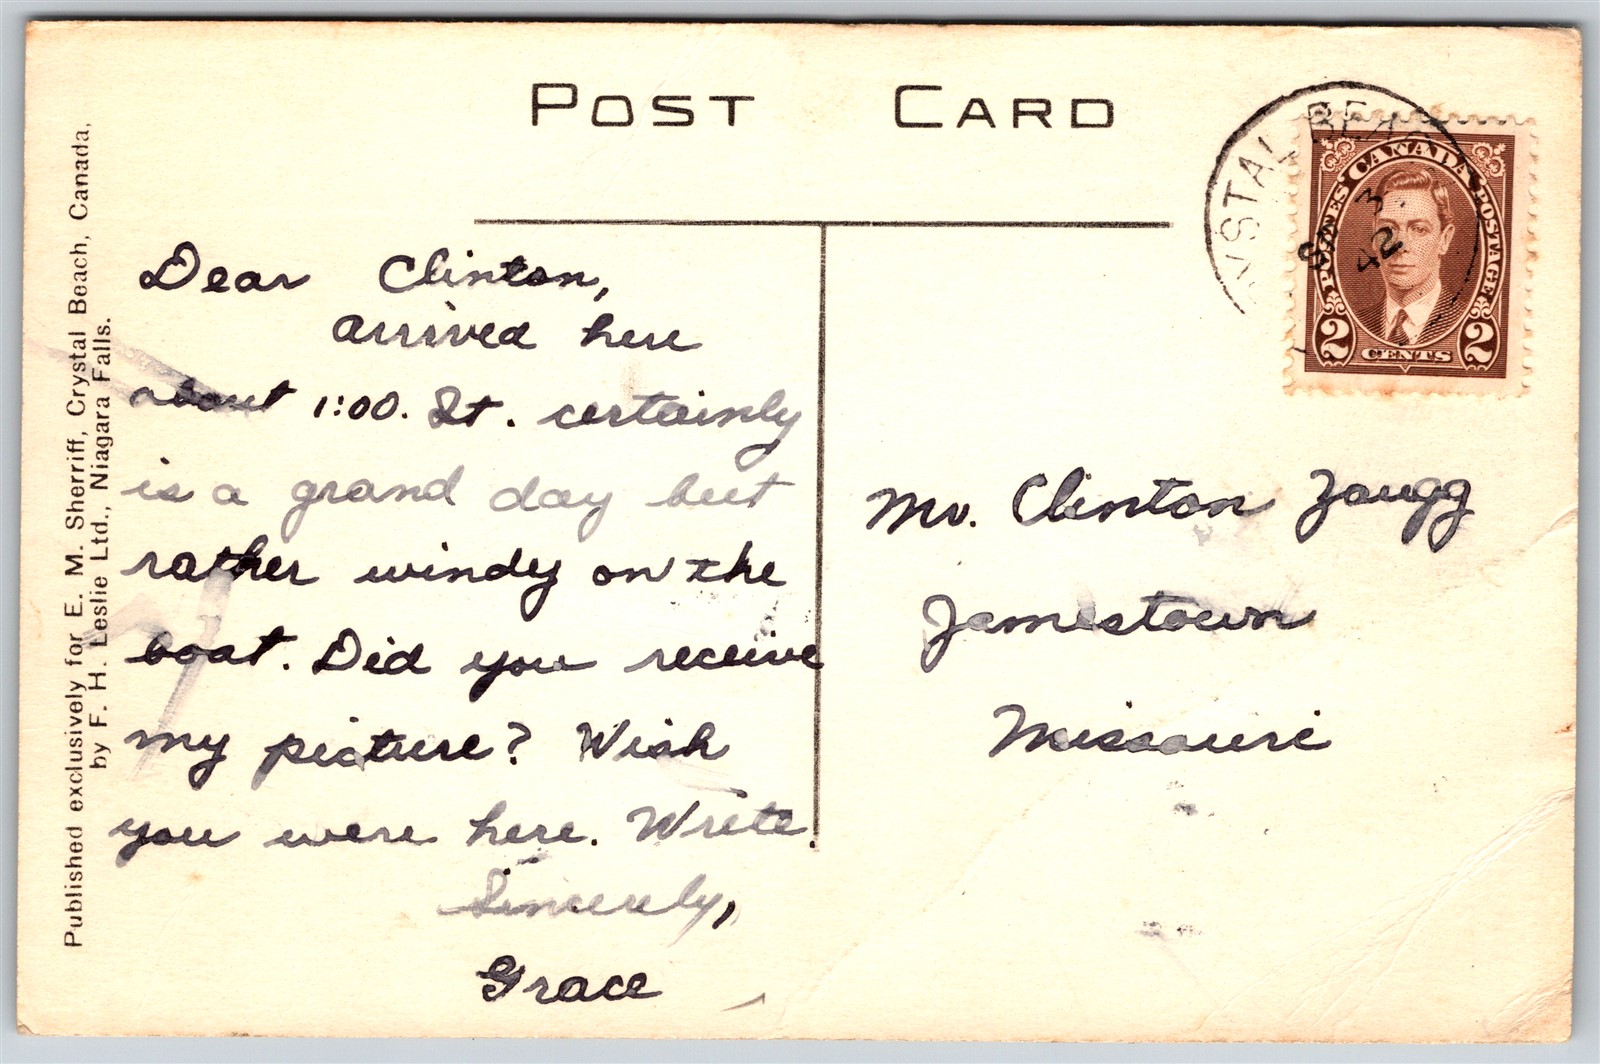 POST CARD
Published exclusively for E. M. Sherriff, Crystal Beach, Canada,
by F. H. Leslie Ltd., Niagara Falls.
Dear Clinton,
arrived here
about 1:00. It. certainly
is a grand day but
rather windy on the
boat. Did you receive
my picture? Wish
you were here. Write.
Sincerely,
Grace
YSTAL BEAC
3
42
CANADA
POSTES POSTAGE
2 CENTS 2
Mr. Clinton Zaugg
Jamestown
Missouri